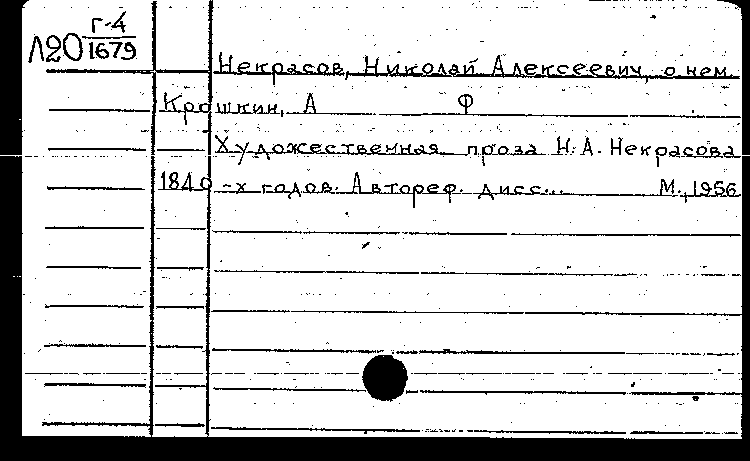 Г-4
Л20 1679
Некрасов, Николай Алексеевич, о нем.
Крошкин, А Ф
Художественная проза Н.А. Некрасова
1840-х годов. Автореф. дисс... М., 1956